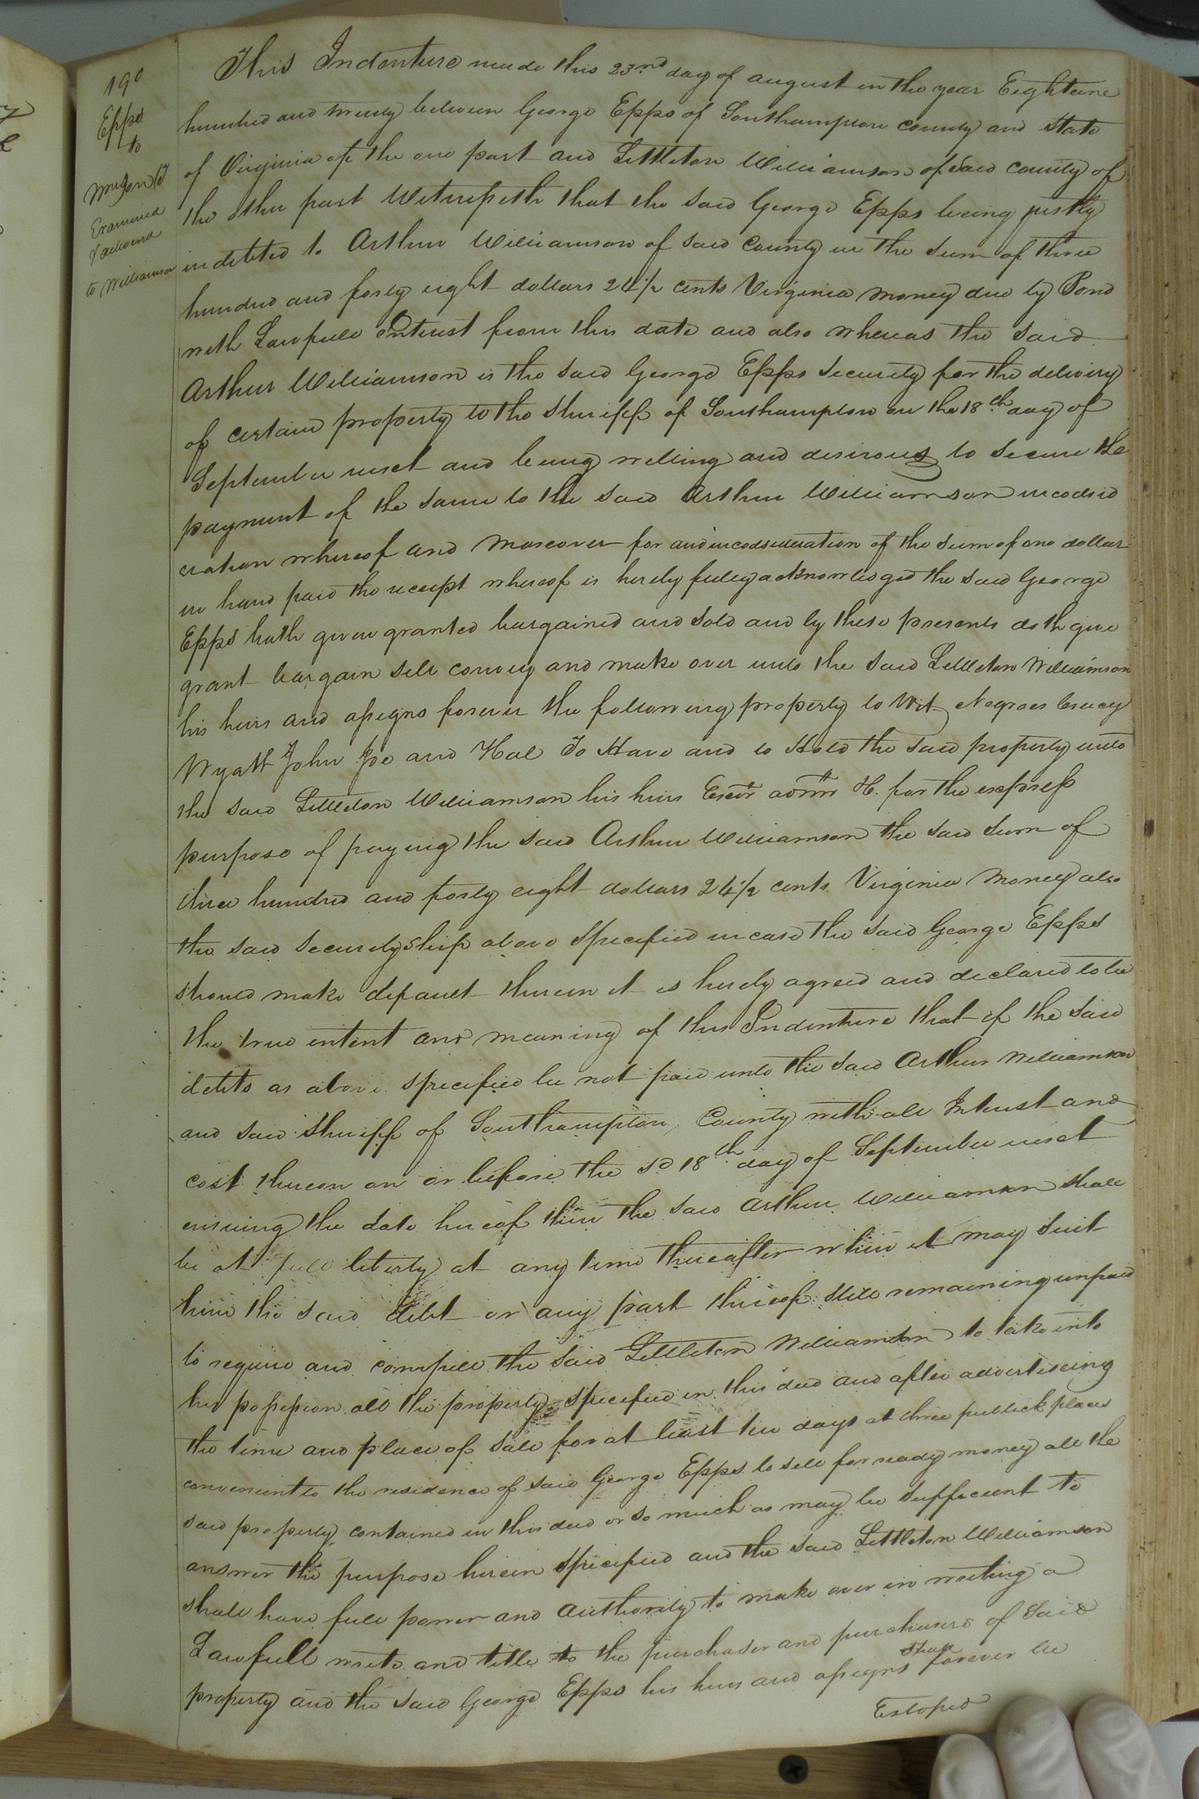 190
Epps
to
Wmson &c
Examined
& delivered
to Williamson
This Indenture made this 23rd day of august in the year Eighteene
hundred and twenty between George Epps of Southampton county and State
of Virginia of the one part and Littleton Williamson of Said County of
the other part Witnesseth that the said George Epps being justly
indebted to Arthur Williamson of said County in the Sum of three
hundred and forty eight dollars 24½ cents Virginia money due by Bond
with Lawfull Intrust from this date and also whereas the said
Arthur Williamson is the said George Epps Security for the delivery
of certain property to the Sheriff of Southampton on the 18th day of
September next and being willing and desirous to secure the
payment of the same to the said Arthur Williamson in codsid
eration whereof and moreover for and in codsideration of the sum of one dollar
in hand paid the receipt whereof is hereby fully acknowledged the said George
Epps hath given granted bargained and sold and by these presents doth give
grant bargain sell convey and make over unto the said Littleton Williamson
his heirs and assigns forever the following property to Wit, Negroes
Wyatt John Joe and Hal To Have and to Hold the said property unto
the said Littleton Williamson his heirs Exors admrs &c. for the express
purpose of paying the said Arthur Williamson the said Sum of
three hundred and forty eight dollars 24½ cents Virginia Money also
the said securityship above specified in case the said George Epps
should make default therein it is hereby agreed and declared to be
the true intent and meaning of this Indenture that if the said
debts as above specified be not paid unto the said Arthur Williamson
and said Sheriff of Southampton County with all Intrust and
cost thereon on or before the sd 18th day of September next
ensuing the date hereof then the said Arthur Williamson shall
be at full liberty at any time thereafter when it may Suit
him the said debt or any part thereof still remaining unpaid
to require and compell the said Littleton Williamson to take into
his possession all the property specified in this deed and after advertiseing
the time and place of sale for at least ten days at three publick places
convenient to the residence of said George Epps to sell for ready money all the
said property contained in this deed or so much as may be sufficient to
answer the purpose herein specified and the said Littleton Williamson
shall have full power and authority to make over in writing a
Lawfull write and title to the purchaser and purchasers of said
property and the said George Epps his heirs and assigns shall forever be
Estoped